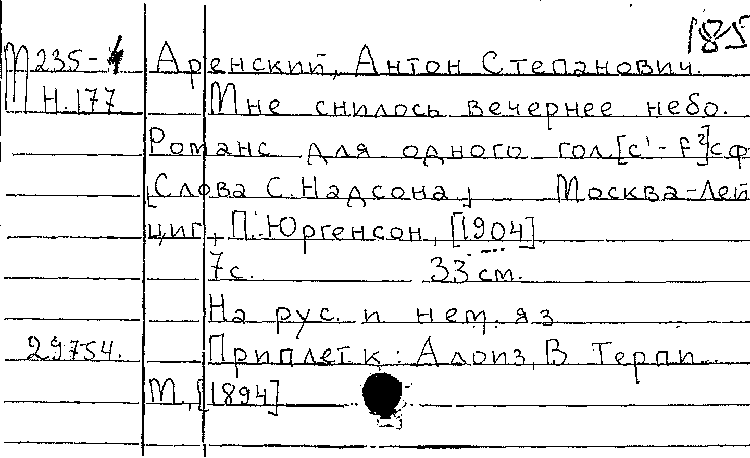 185
М235-4 Аренский, Антон Степанович.
Н.177 Мне снилось вечернее небо.
Романс для одного гол.[c'-f²]с ф
[Слова С.Надсона] Москва-Лей
циг, П.Юргенсон, [1904]
7с. 33 см.
На рус. и нем. яз
29754. Приплет к: Алоиз, В Терпи..
М., [1894]